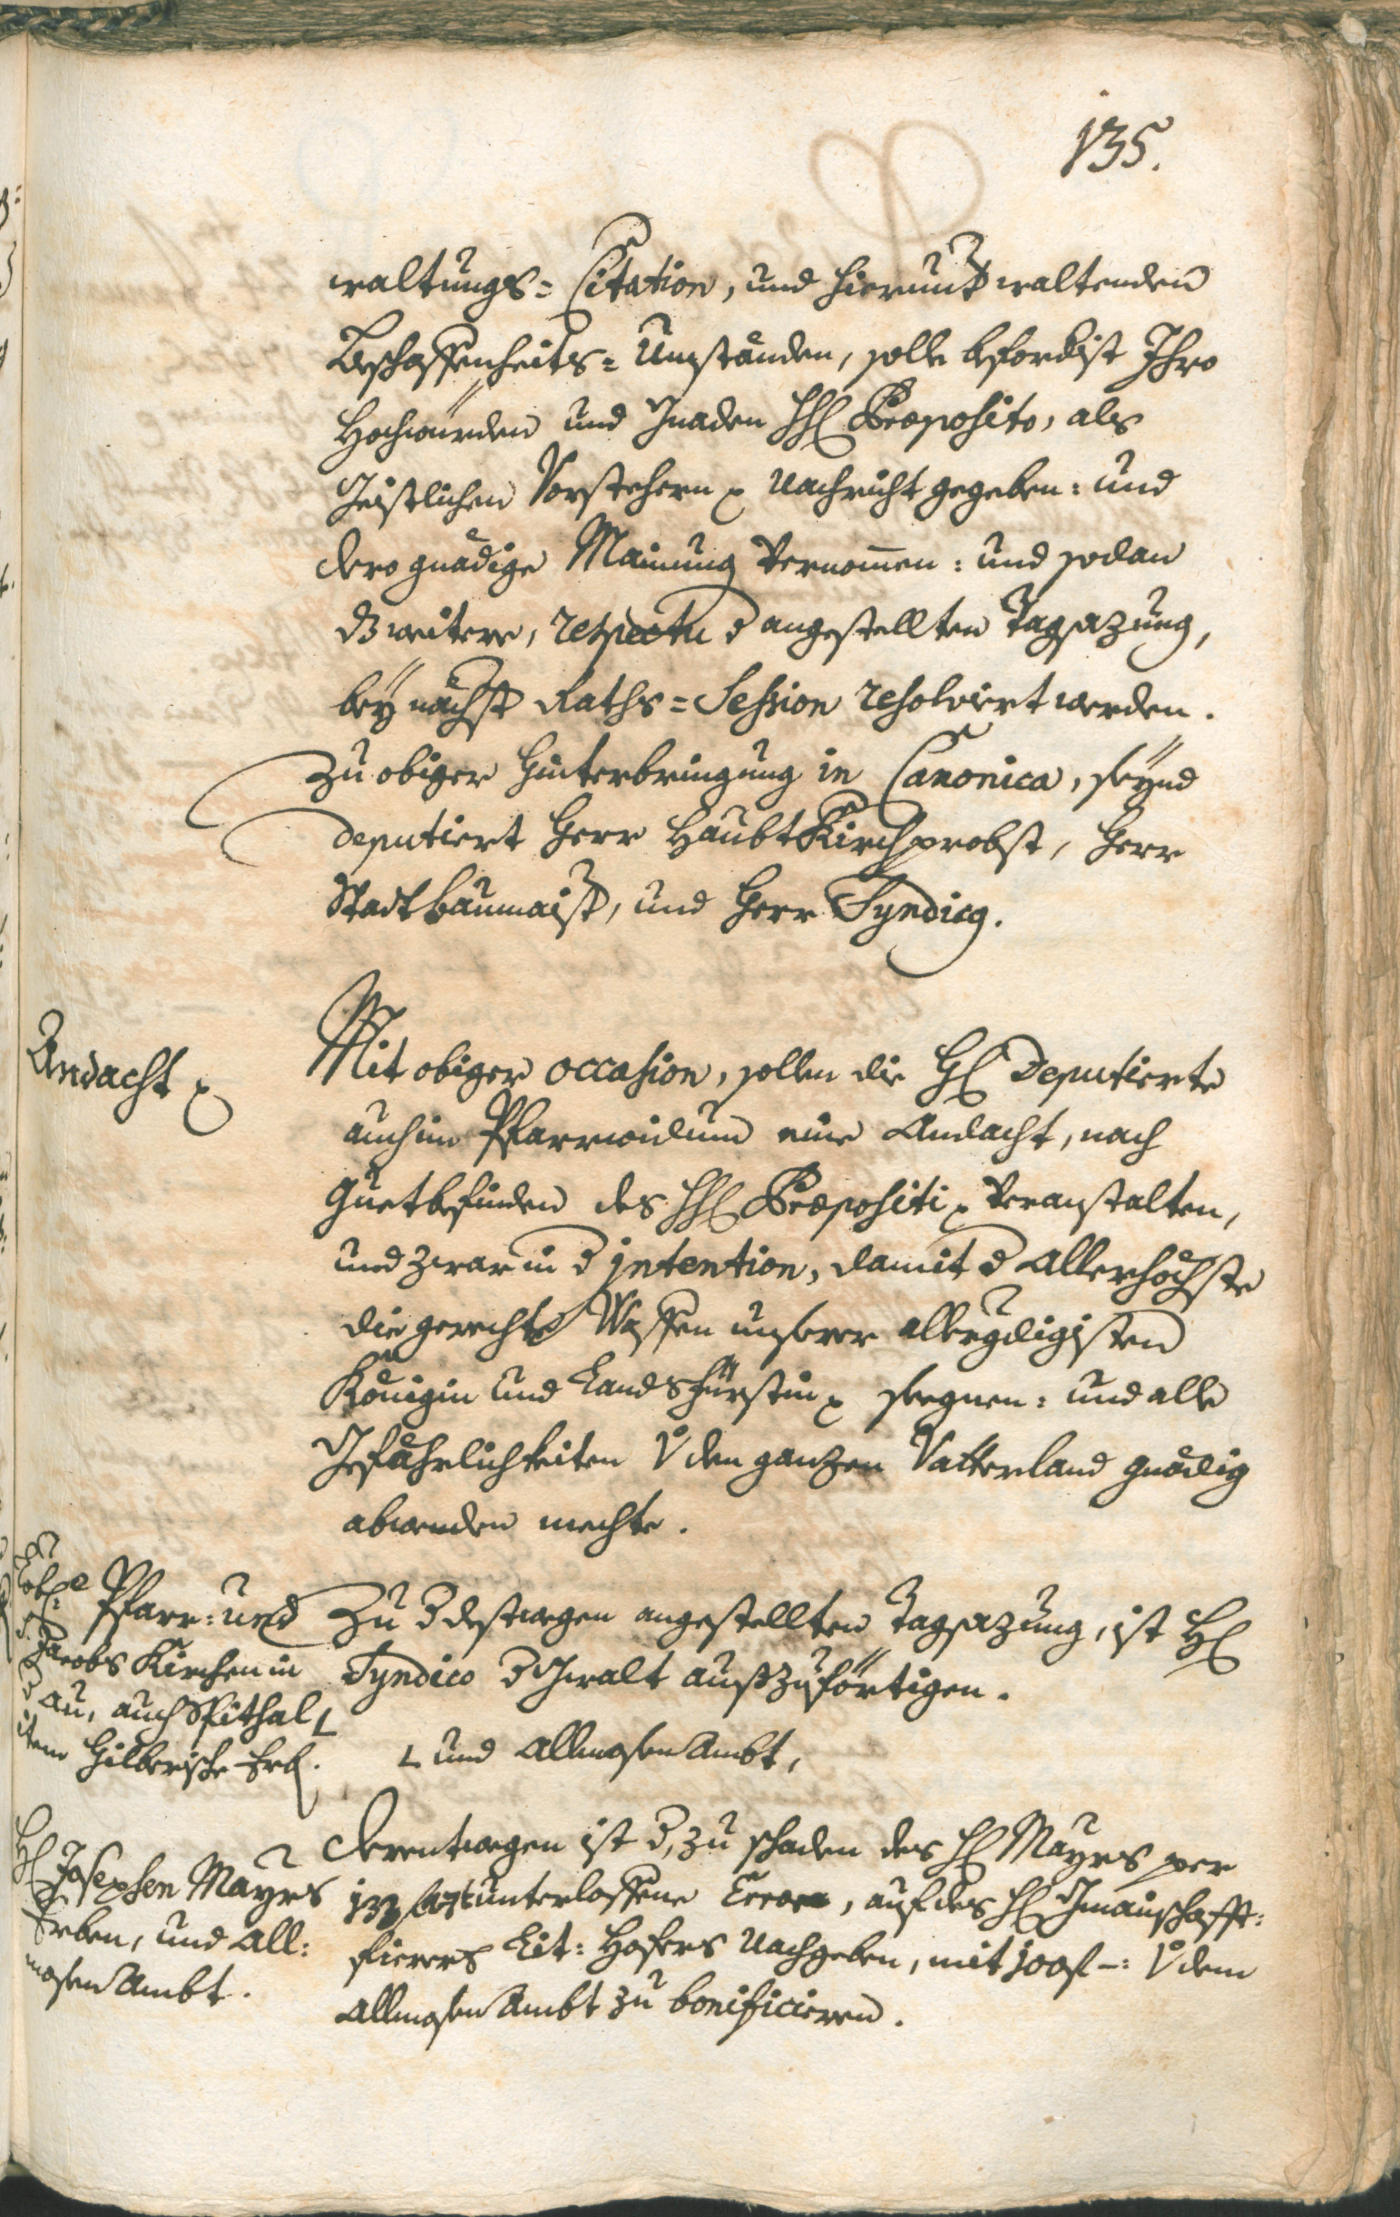 135.
waltungs= Citation, und hierunt waltenden
Beschaffenheits= Umständen, solle beforderist Ihro
Hochwürden und Gnaden HH Præposito, als
Geistlichen Vorstehern Nachricht gegeben: und
dero gnädige Mainung vernom̄en: und sodan
dz weitere, respectu d angestellten Tagsazung,
bey nächst Raths= Session resolviert werden.
Zu obiger Hinterbringung in Canonica, seynd
deputiert Herr HaubtKirchprobst, Herr
Stattbaumaist, und Herr Syndicq.
Andacht
Mit obiger occasion, sollen die H Deputierte
auch im Pfarrwidum eine Andacht, nach
Guetbefinden des HH Præpositi veranstalten,
und zwar in d intention, damit d Allerhöchste
die gerechte Waffen unserer allergdigisten
Königin und Landsfürstin seegnen: und alle
Gefährlichkeiten v den ganzen Vatterland gnädig
abwenden mechte.
Pfarr= und
Jacobs Kirchen in
d Au, auch Spithal L
item Hilberische Erb.
Zu d destwegen angestellten Tagsazung, ist H
Syndico d Gwalt außzuförtigen.
L und Allmosen Ambt,
H Josephen Mayrs
Erben, und All:
mosen Ambt.
Derentwegen ist d, zu schaden des H Mayrs per
unterloffene Error, auf des H Gmainschafft:
fierers Tit: Hofers Nachgeben, mit 100 f –: v dem
Allmosen Ambt zu bonificieren.